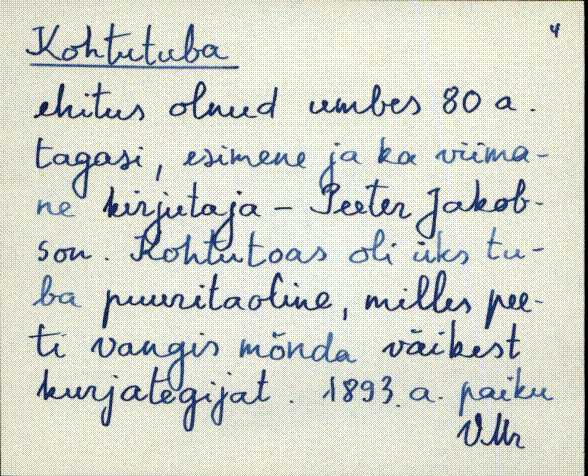 4
Kohtutuba
ehitus olnud umbes 80 a.
tagasi, esimene ja ka viima-
ne kirjutaja – Peeter Jakob-
son. Kohtutoas oli üks tu-
ba puuritaoline, milles pee-
ti vangis mõnda väikest
kurjategijat. 1893. a. paiku
VMr